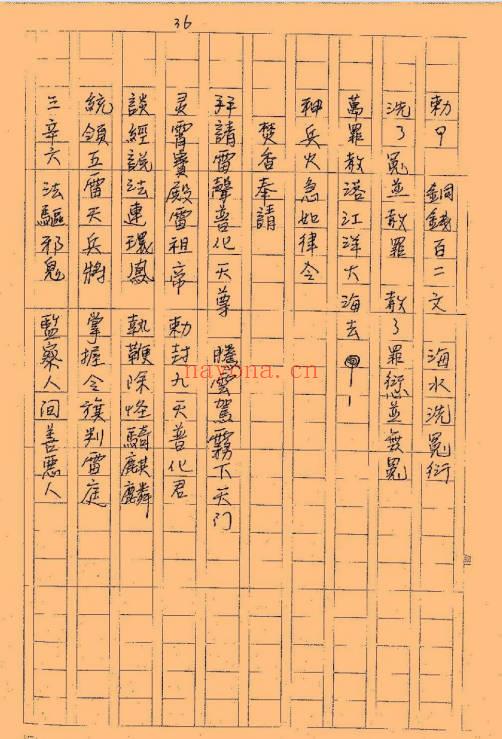 36
勅甲 銅錢百二文 海水洗冤衍
洗了冤並赦罪 赦了罪愆並無冤
萬罪赦落江洋大海去
神兵火急如律令
焚香奉請
拜請雷聲善化天尊 騰雲駕霧下天门
灵霄寶殿雷祖帝 勅封九天善化君
談經說法連環鳳 執鞭除怪騎麒麟
統領五雷天兵將 掌握令旗判雷庭
三辛六法驅邪鬼 監察人间善惡人
nayona.cn